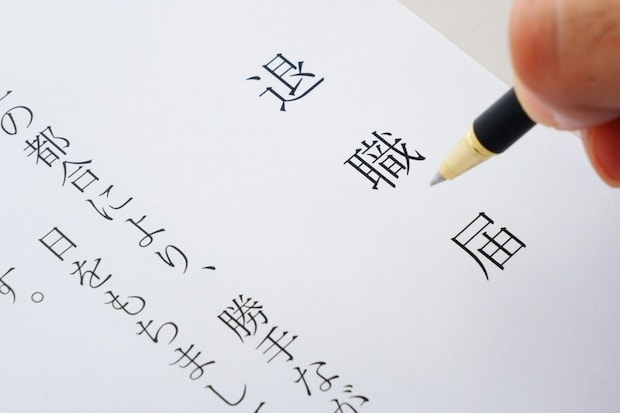 退職届
の都合により、勝手なが
日をもちまし
す。